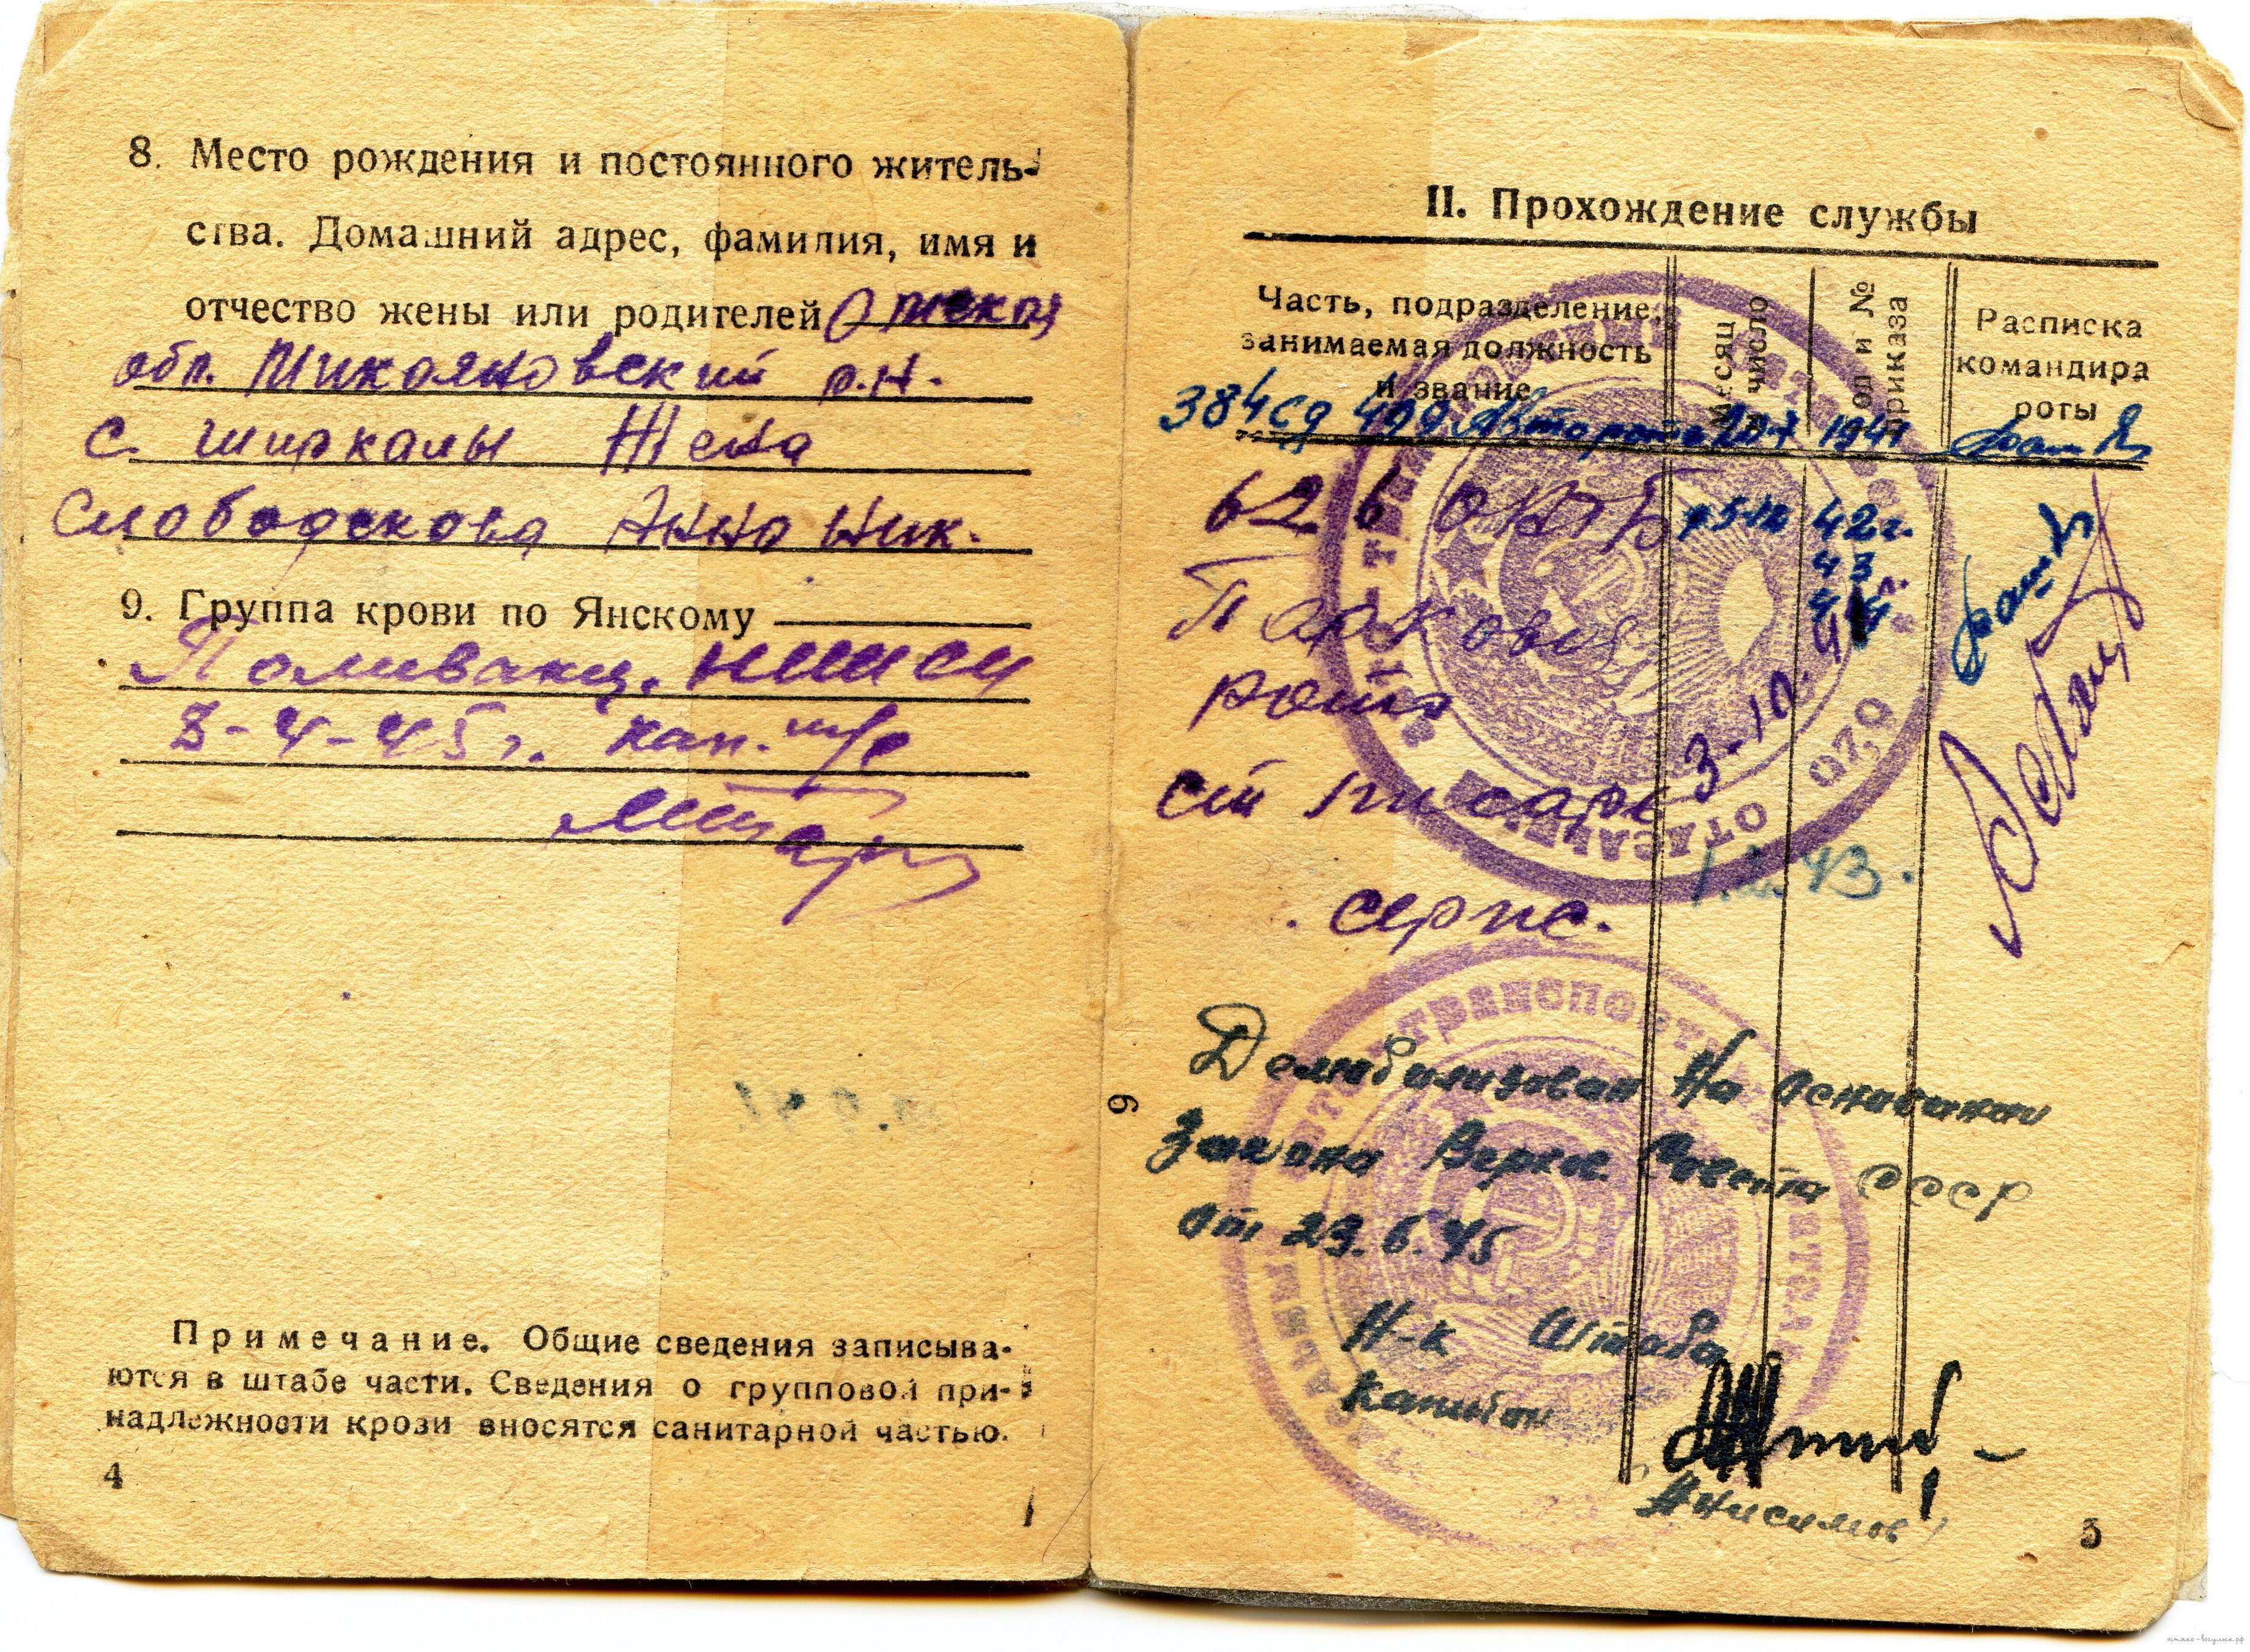 8. Место рождения и постоянного житель-
ства. Домашний адрес, фамилия, имя и
отчество жены или родителей Омская
обл. Микояновский р.н.
с. Ширкалы Жена
Слободскова Анна Ник.
9. Группа крови по Янскому
Поливакц. НИИСИ
3-4-45 г. кап. м/с
Примечание. Общие сведения записыва-
ются в штабе части. Сведения о групповой при-
надлежности крови вносятся санитарной частью.
4
II. Прохождение службы
Часть, подразделение, занимаемая должность и звание
Месяц и число
Год и № приказа
Расписка командира роты
384 сд 499 Авторота 20-X 1941
62 ОАТБ 42 г.
43
44
Парковая
рота
ст писарь 3-10.
1.2.43.
серж.
Демобилизован На основании
Закона Верхов. Совета СССР
от 23.6.45
Н-к Штаба
капитан
Анисимов
6
5